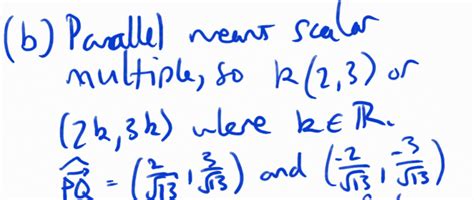 (b) Parallel means scalar
multiple, so k(2,3) or
(2k,3k) where k∈ℝ.
P̂Q⃗ = (2/√13, 3/√13) and (-2/√13, -3/√13)